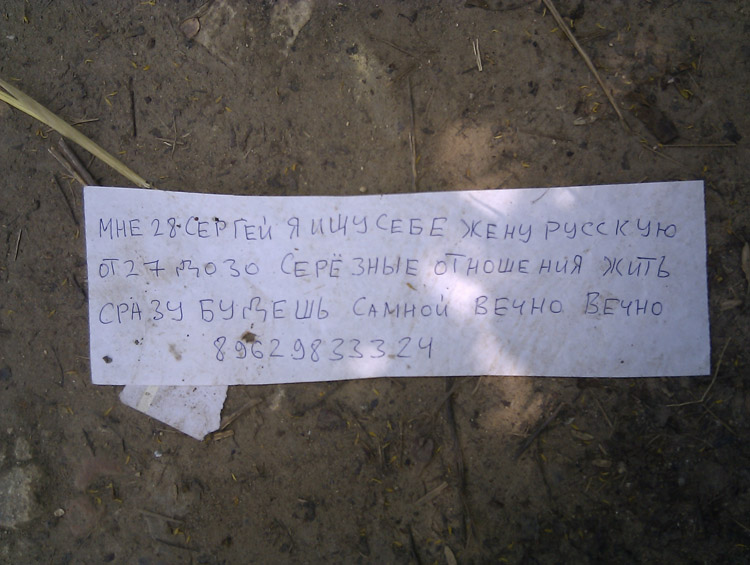 МНЕ 28 СЕРГЕЙ Я ИЩУ СЕБЕ ЖЕНУ РУССКУЮ
ОТ 27 ДО 30 СЕРЁЗНЫЕ ОТНОШЕНИЯ ЖИТЬ
СРАЗУ БУДЕШЬ САМНОЙ ВЕЧНО ВЕЧНО
89629833324